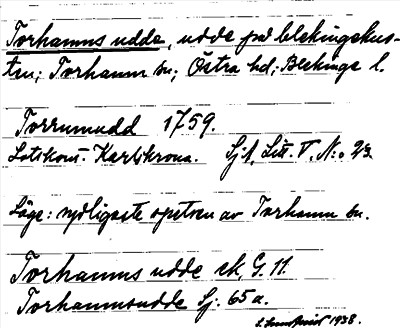 Torhamns udde, udde på blekingskus-
ten; Torhamn sn; Östra hd; Blekinge l.
Torrumudd 1759.
Lotskont. Karlskrona. Sjk, Litt. V, N:o 23.
Läge: sydligaste spetsen av Torhamn sn.
Torhamns udde ek, G. 11.
Torhamnsudde Sj. 65 a.
1938.